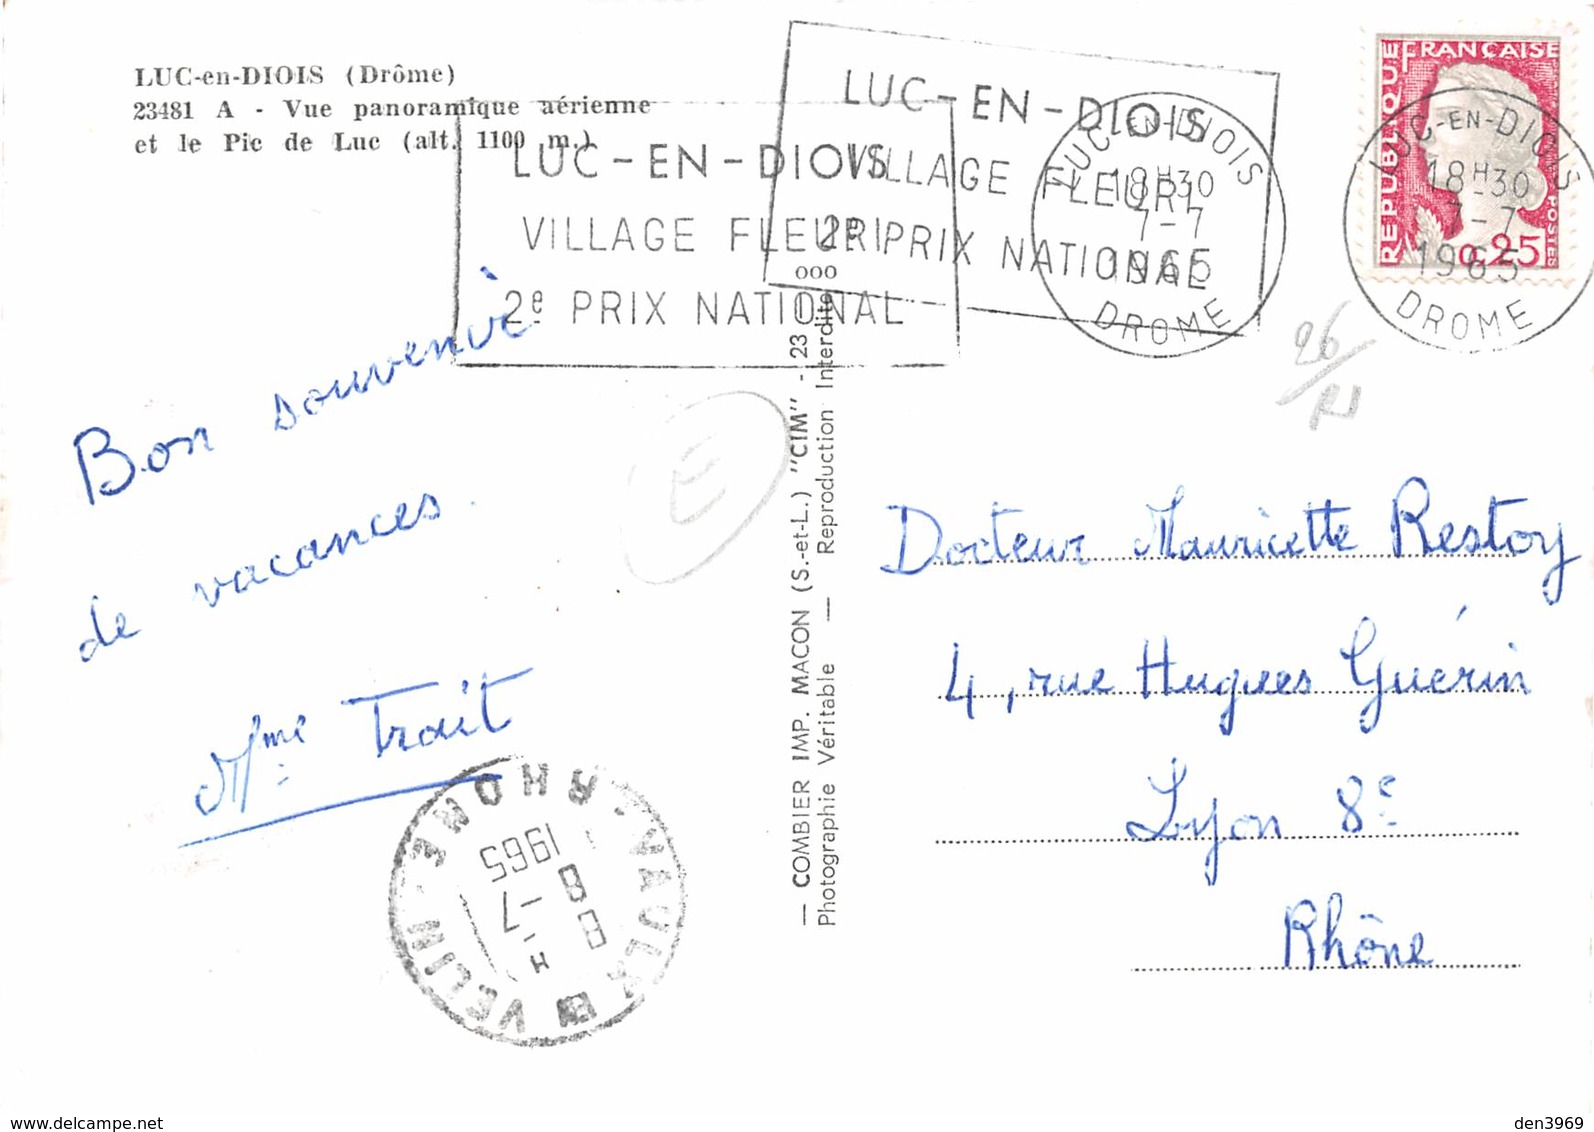 LUC-en-DIOIS (Drôme)
23481 A - Vue panoramique aérienne
et le Pic de Luc (alt. 1100 m.)
LUC-EN-DIOIS
VILLAGE FLEURI
2e PRIX NATIONAL
LUC-EN-DIOIS
VILLAGE FLEURI
2e PRIX NATIONAL
LUC-EN-DIOIS
18H30
7-7
1965
DROME
LUC-EN-DIOIS
18H30
7-7
1965
DROME
REPUBLIQUE FRANÇAISE
0,25
POSTES
26/
Bon souvenir
de vacances.
Mme Trait
E
— COMBIER IMP. MACON (S.-et-L.) "CIM" - 23
Photographie Véritable — Reproduction Interdite
ooo
Docteur Mauricette Restoy
4, rue Hugues Guérin
Lyon 8e
Rhône
VAULX EN VELIN
RHONE
8-7
1965
den3969
www.delcampe.net